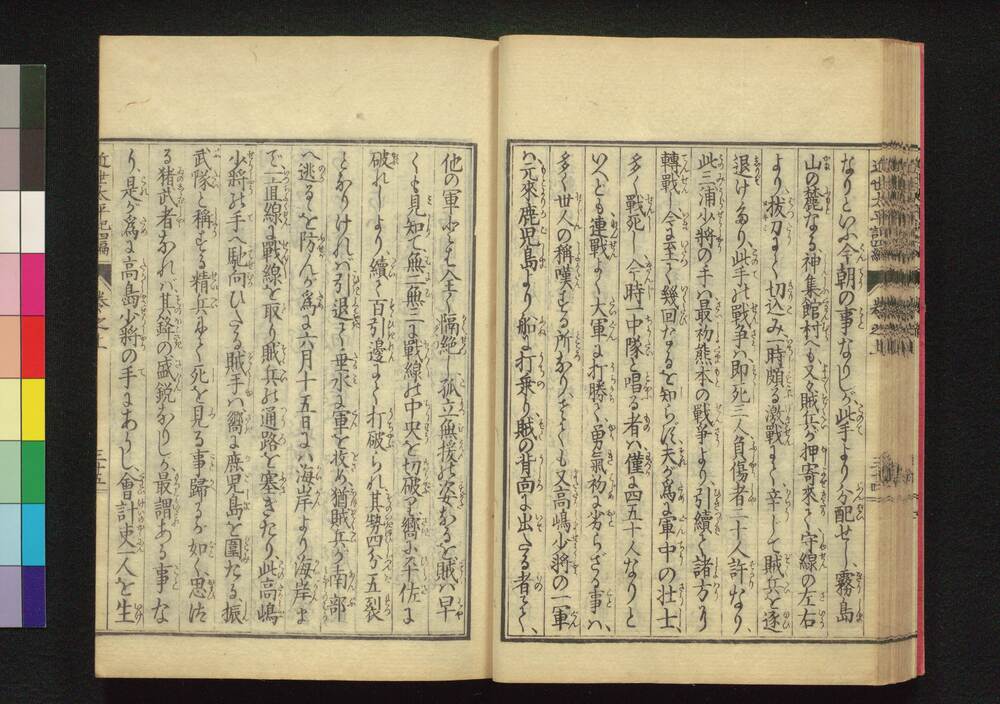 なりといふ今朝の事なりしが此手より分配せし霧島
山の麓なる神集館村へも又々賊兵が押寄來て守線の左右
より抜刀にて切込み一時頗る激戰にて辛じて賊兵を逐
退けたり此手の戰争ハ即死三人負傷者二十人許なり
此三浦少将の手ハ最初熊本の戰争より引續き諸方に
轉戰し今に至て幾回なるを知らず夫が爲め軍中の壮士
多く戰死し今時一中隊と唱る者ハ僅に四五十人なりと
いへども連戰よく大軍に打勝て勇氣初に劣らざる事ハ
多く世人の稱嘆する所なりとぞ又高嶋少将の一軍
ハ元來鹿児島より船に打乗り賊の背面に出たる者にて
他の軍とハ全く隔絶し孤立無援の姿なるを賊ハ早
くも見知て無二無三に戰線の中央を切破り嚮に平佐に
破れしより續て百引邊にて打破られ其勢四分五裂
となりけれバ引退て垂水に軍を收め猶賊兵が南部
へ逃るを防んが爲に六月十五日にハ海岸より海岸ま
で一直線に戰線を取り賊兵の通路を塞ぎたり此高嶋
少将の手へ馳向ひたる賊手ハ嚮に鹿児島を圍たる振
武隊と稱する精兵にて死を見る事歸るが如く思ふ
る猪武者なれバ其鋒の盛鋭なりしが最謂ある事な
り是が爲に高島少将の手にありし會計吏一人を生
近世太平記四編
三十五